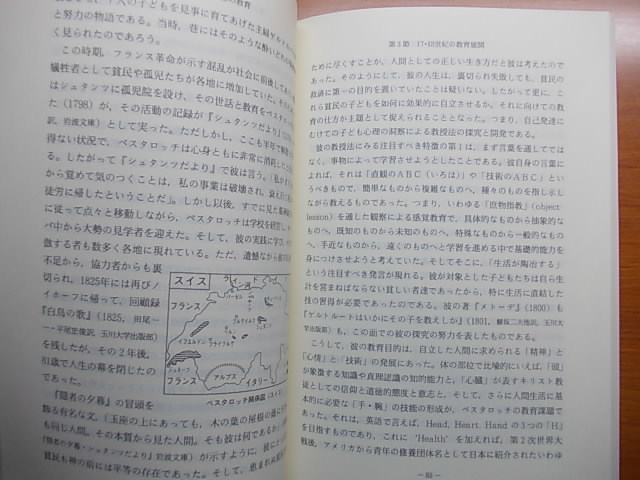 の教育
人の子どもを見事に育てあげた主婦ゲルトルー
と努力の物語である。当時、巷にはそのような酔いどれの
見られたのであろう。
この時期，フランス革命が示す混乱が社会に前後して
犠牲者として貧民や孤児たちが各地に増加していた。
はシュタンツに孤児院を設け，その世話と教育を
た（1798）が，その活動の記録が『シュタンツだより』
訳，岩波文庫）として実った。ただしかし，ここも半年で
得ない状況で，ペスタロッチは心身ともに非常に消耗した
る。したがって『シュタンツだより』で彼は言う。
から覚めて気のつくことは，私の事業は破壊され，
徒労に帰したということだ』。しかし以後，すでに見た
に従って点々と移動しながら，ペスタロッチは学校を
パ中から大勢の見学者を迎えた。そして，彼の実践に学び，
傲する者も数多く各地に現れている。ただ，遺憾ながら
不足から，協力者からも裏
切られ，1825年には再びノ
イホーフに帰って，回顧録
『白鳥の歌』（1825，田尾一
一・平尾正俊訳，玉川大学出版部）
を残したが，その2年後，
81歳で人生の幕を閉じたの
であった。
スイス
フランス
フランス
アルプス
イタリー
ペスタロッチ関係図（スイス）
『隠者の夕暮』の冒頭を
飾る有名な文，「玉座の上にあっても，木の葉の屋根の
も同じ人間。その本質から見た人間。そも彼は何であるか」
『隠者の夕暮・シュタンツだより』岩波文庫）
貧民木神の前には平等の存在であった。そして，
第3節 17・18世紀の教育展開
ために尽くすことが，人間としての正しい生き方だと彼は考えたので
あった。そのようにして，彼の人生は，裏切られ失敗しても，貧民の
救済に第一の目的を置いていたことは疑いない。したがって更に，こ
れら貧民の子どもを如何に効果的に自立させるか，それに向けての教
育の仕方が主題として捉えられることとなった。つまり，自己発達に
むけての子ども心理の洞察による教授法の探究と開発である。
彼の教授法にみる注目すべき特徴の第1は，まず言葉を通してでは
なく，事物によって学習させようとしたことである。彼自身の言葉に
よれば，それは「直観のABC（いろは）」や「技術のABC」とい
うべきもので，簡単なものから複雑なものへ，種々のものを指し示し
ながら教えるのであった。つまり，いわゆる「庶物指教」（object
lesson）を通した観察による感覚教育で，具体的なものから抽象的な
ものへ，既知のものから未知のものへ，特殊なものから一般的なもの
へ，手近なものから，遠くのものへと学習を進める中で基礎的能力を
身につけさせようと考えていた。そしてそこに，「生活が陶冶する」
という注目すべき発言が現れる。彼が対象とした子どもたちは自ら生
計を営まねばならない貧しい者達であったから，特に生活に直結した
技の習得が必要であったのである。彼の著『メトーデ』（1800）も
『ゲルトルートはいかにその子を教えしか』（1801，
大学出版部）も，この面での彼の探究の努力を表したものである。
こうして，彼の教育目的は，自立した人間に求められる「精神」と
「心情」と「技術」の発展にあった。体の部位で比喩的にいえば，「頭」
が象徴する知識や真理認識の知的能力と，「心臓」が表すキリスト教
徒としての信仰と道徳的態度と意志と，そして，さらに人間生活に基
本的に必要な「手・腕」の技能の形成が，ペスタロッチの教育課題で
あった。それは，英語で言えば，Head, Heart, Hand の3つの「H」
とするものであって，これに 'Health' を加えれば，第2次世界大
戦後，アメリカから青年の修養団体名として日本に紹介されたいわゆ